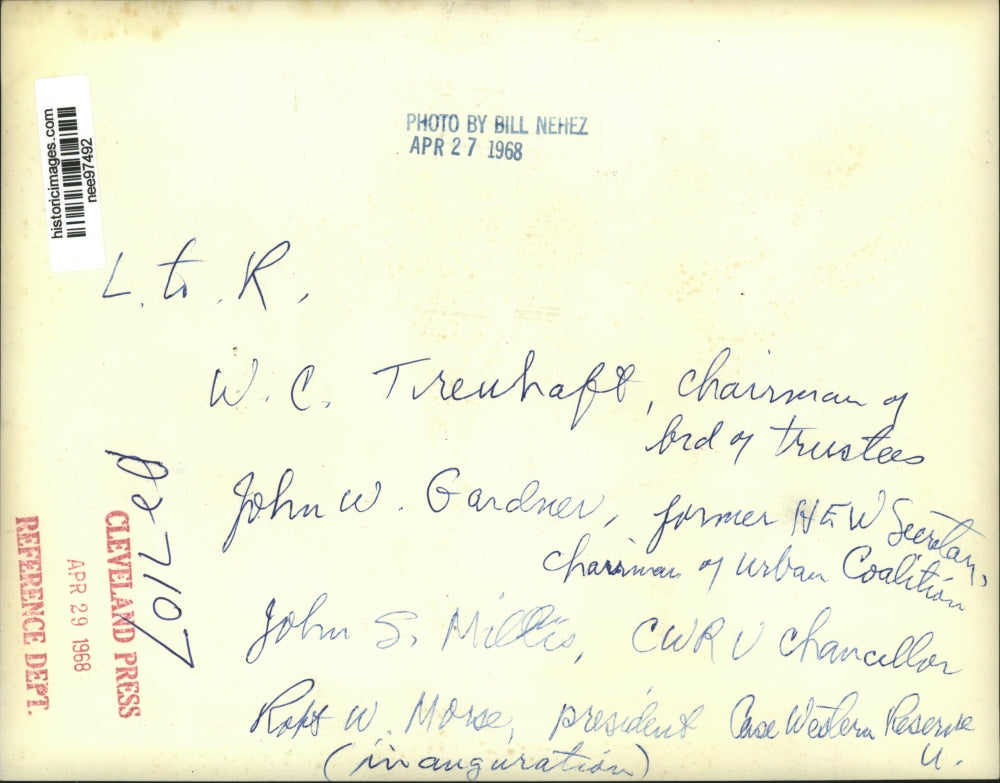 historicimages.com
nee97492
PHOTO BY BILL NEHEZ
APR 27 1968
L. to. R.
W. C. Treuhaft, chairman of
brd of trustees
John W. Gardner, former HEW Secretary,
chairman of Urban Coalition
John S. Millis, CWRU Chancellor
Robt W. Morse, president Case Western Reserve
U.
(inauguration)
CLEVELAND PRESS
APR 29 1968
REFERENCE DEPT.